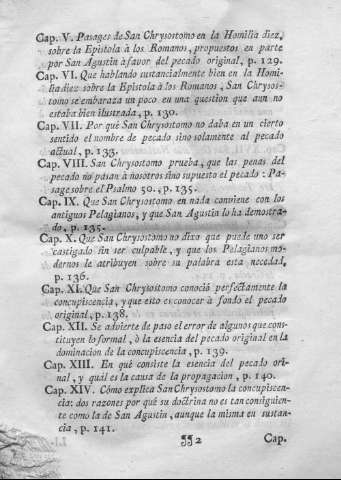 Cap. V. Pasages de San Chrysostomo en la Homilia diez,
sobre la Epistola à los Romanos, propuestos en parte
por San Agustin à favor del pecado original, p. 129.
Cap. VI. Que hablando sustancialmente bien en la Homi-
lia diez sobre la Epistola à los Romanos, San Chrysos-
tomo se embaraza un poco en una question que aun no
estaba bien ilustrada, p. 130.
Cap. VII. Por què San Chrysostomo no daba en un cierto
sentido el nombre de pecado sino solamente al pecado
actual, p. 133.
Cap. VIII. San Chrysostomo prueba, que las penas del
pecado no pasan à nosotros sino supuesto el pecado: Pa-
sage sobre el Psalmo 50., p. 135.
Cap. IX. Que San Chrysostomo en nada conviene con los
antiguos Pelagianos, y que San Agustin lo ha demostra-
do, p. 135.
Cap. X. Que San Chrysostomo no dixo que puede uno ser
castigado sin ser culpable, y que los Pelagianos mo-
dernos le atribuyen sobre su palabra esta necedad,
p. 136.
Cap. XI. Que San Chrysostomo conoció perfectamente la
concupiscencia, y que esto es conocer à fondo el pecado
original, p. 138.
Cap. XII. Se advierte de paso el error de algunos que cons-
tituyen lo formal, ò la esencia del pecado original en la
dominacion de la concupiscencia, p. 139.
Cap. XIII. En què consiste la esencia del pecado ori-
nal, y quál es la causa de la propagacion, p. 140.
Cap. XIV. Cómo explica San Chrysostomo la concupiscen-
cia: dos razones por què su doctrina no es tan consiguien-
te como la de San Agustin, aunque la misma en sustan-
cia, p. 141.
¶¶ 2 Cap.